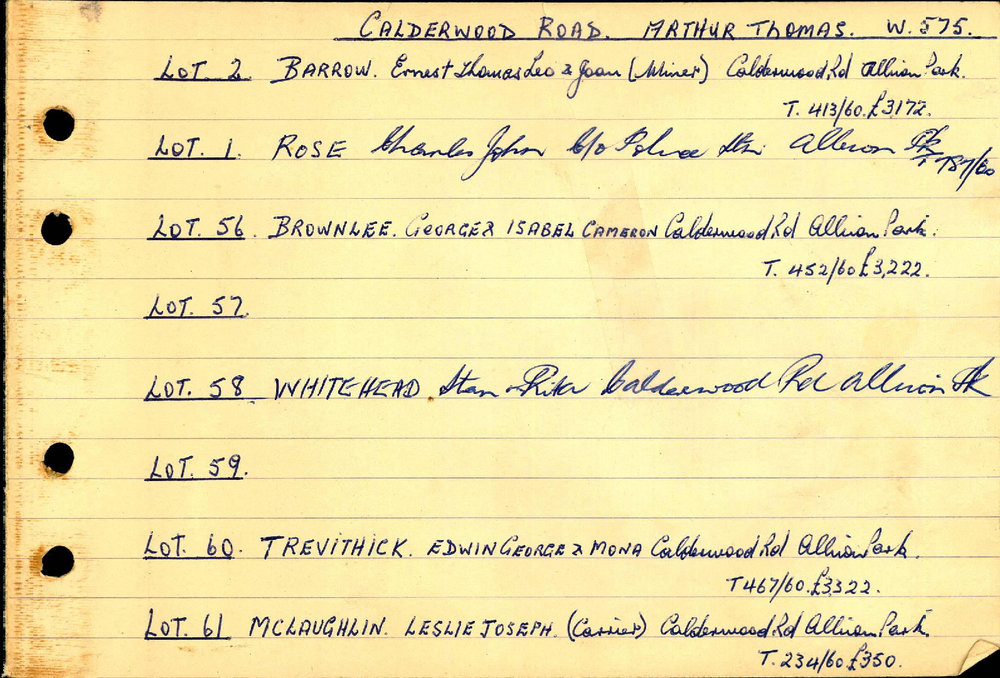 CALDERWOOD ROAD. ARTHUR THOMAS. W. 575.
LOT. 2. BARROW. Ernest Thomas Leo & Joan (Miner) Calderwood Rd Allison Park.
T. 413/60. £3172.
LOT. 1. ROSE Charles John C/o Police Stn Allison Pk
T 787/60
LOT. 56. BROWNLEE. GEORGE & ISABEL CAMERON Calderwood Rd Allison Park.
T. 452/60 £3,222.
LOT. 57.
LOT. 58 WHITEHEAD. Stan & Rita Calderwood Rd Allison Pk
LOT. 59.
LOT. 60. TREVITHICK. EDWIN GEORGE & MONA Calderwood Rd Allison Park.
T 467/60. £3322.
LOT. 61 MCLAUGHLIN. LESLIE JOSEPH. (Carrier) Calderwood Rd Allison Park.
T. 234/60. £350.